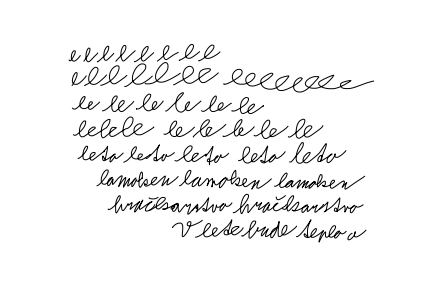 e e l l l l l l
e l l l l l eeeeeeee
le le le le le le le
lelele le le le le le
leto leto leto leto leto
lamohsen lamohsen lamohsen
hračkarstvo hračkarstvo
V lete bude teplo a